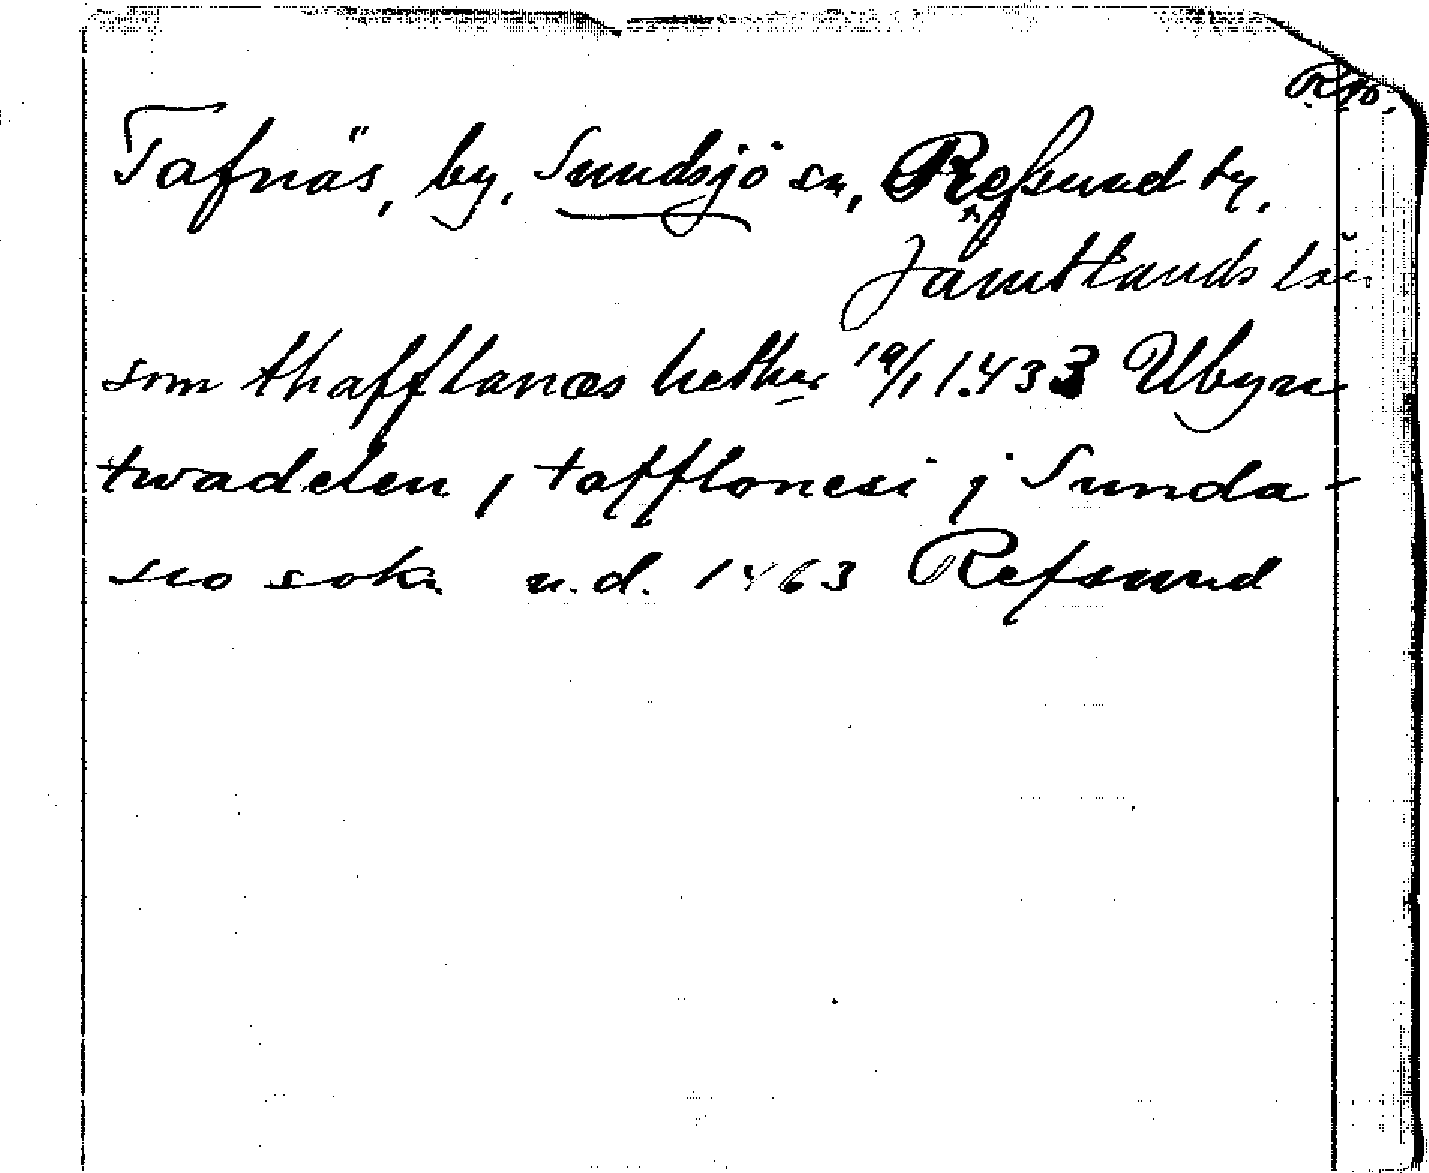 Tafnäs, by, Sundsjö sn, Refsund ty,
Jämtlands län
som thafflanæs hether 19/1 1433 Ubyn
twadelen, tafflonesi j Sunda-
sio sokn u.d. 1463 Refsund